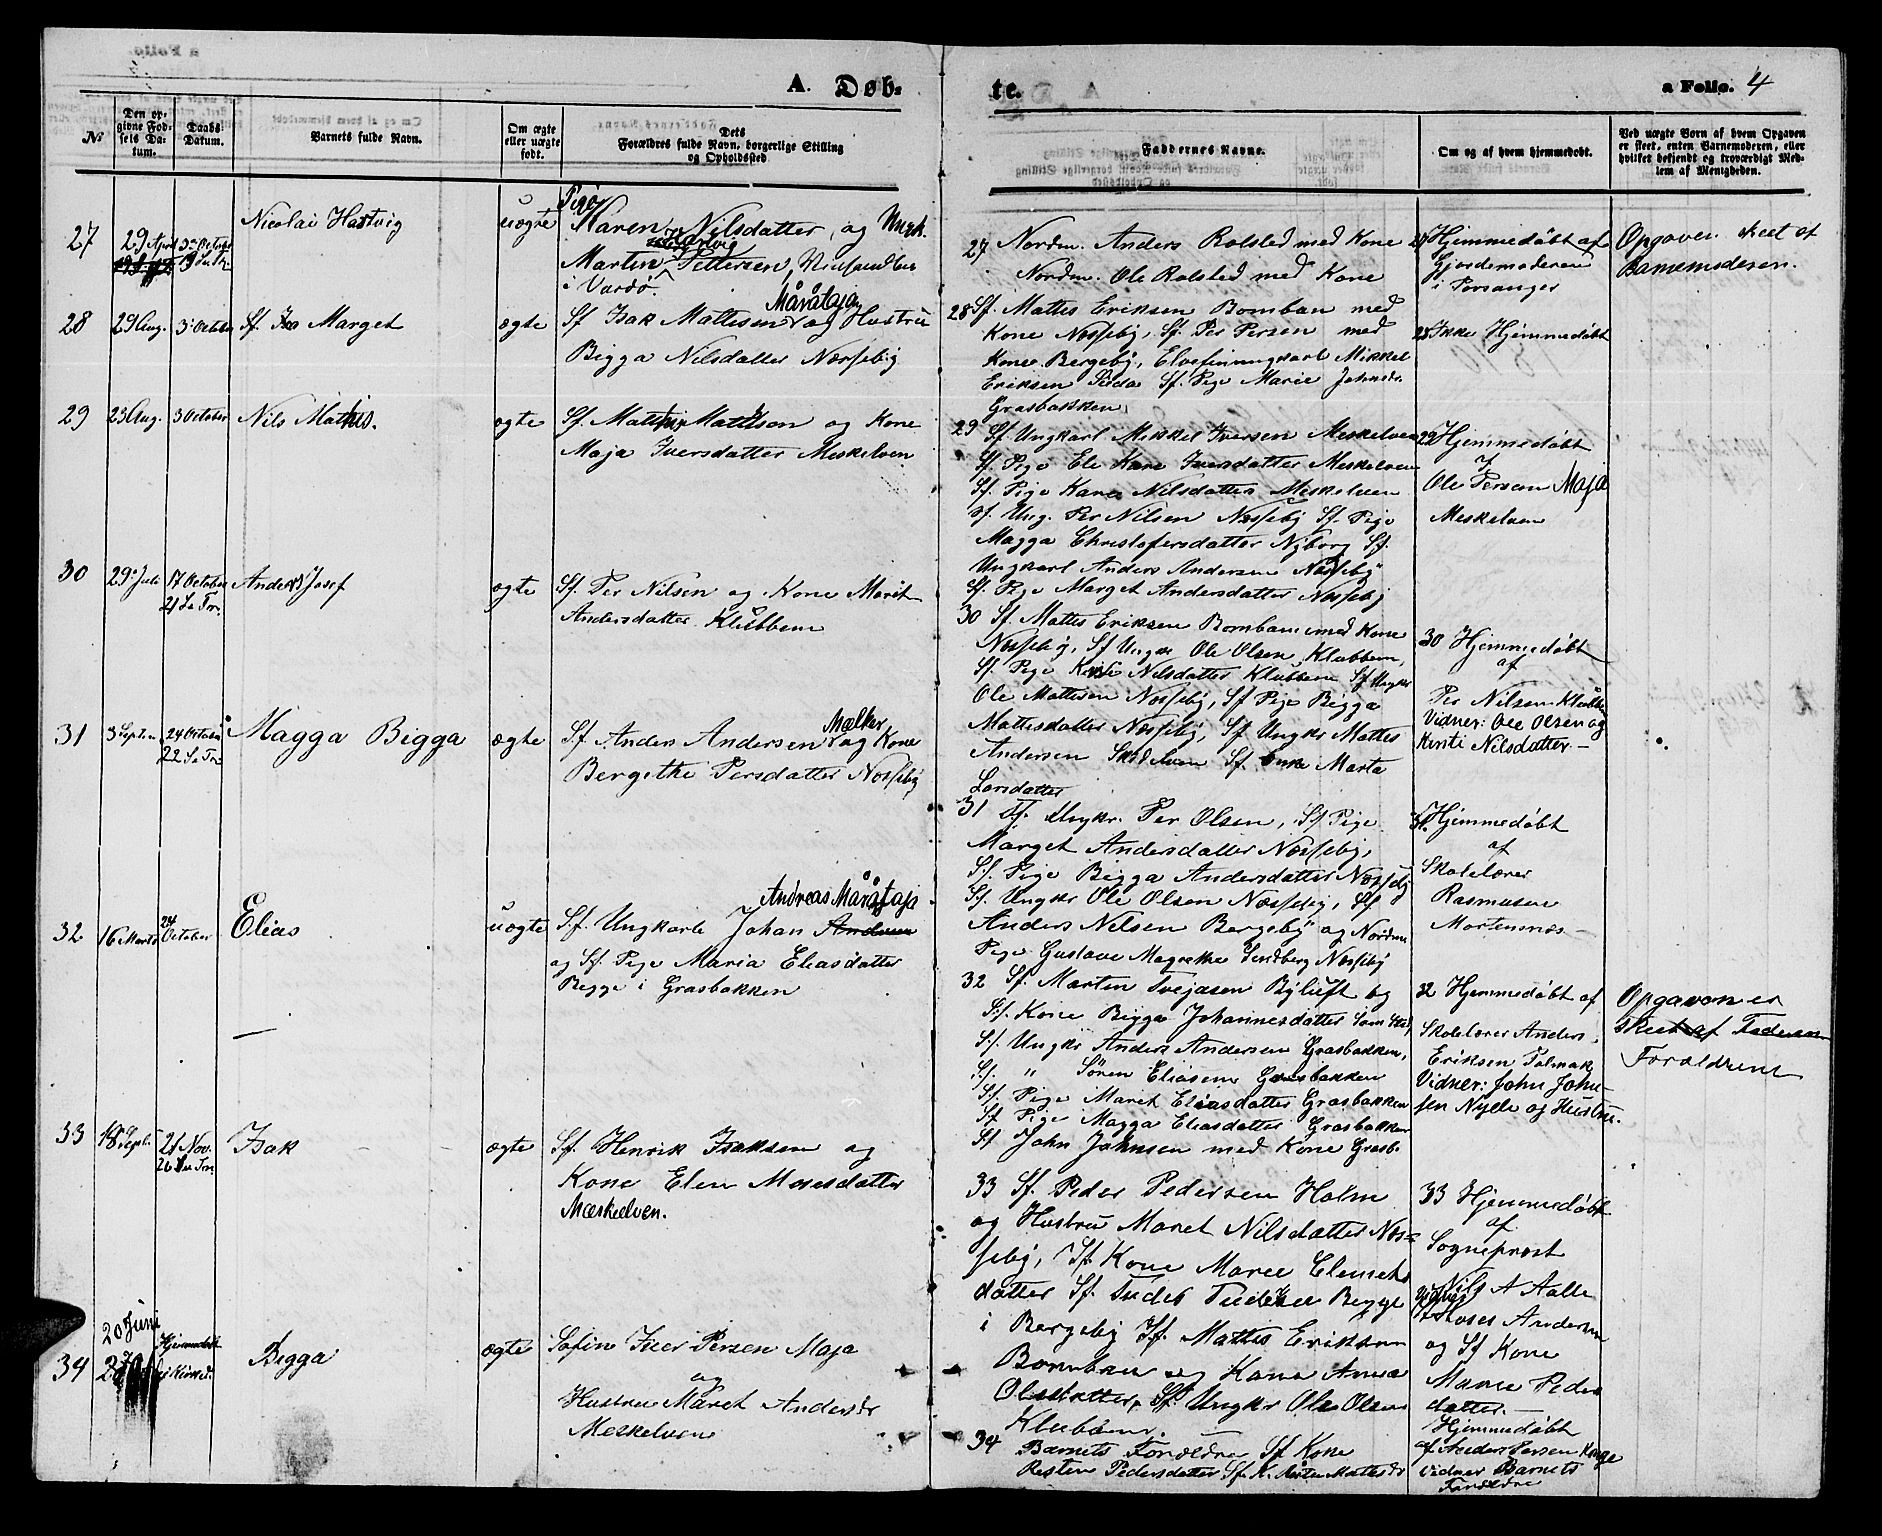 A. Døb-
te.
a Folio. 4
No
Den op-
givne Fød-
sels Da-
tum.
Daabs
Datum.
Barnets fulde Navn.
Om ægte
eller uægte
født.
Dets
Forældres fulde Navn, borgerlige Stilling
og Opholdssted.
Faddernes Navne.
Om og af hvem hjemmedøbt.
Ved uægte Børn af hvem Opgaven
er skeet, enten Barnemoderen, eller
hvilket bekjendt og troværdigt Med-
lem af Menigheden.
27
29 April
3 October
Nicolai Hartvig
uægte
Pige
Karen Nilsdatter, og Ungk.
Martin Pettersen,
i Vardö.
27 Nordm. Anders Rolsted med Kone
Nordm. Ole Rolsted med Kone
27 Hjemmedöbt af
Gjordemoderen
i Porsanger
Opgaven skeet af
Barnemoderen.
28
29 Aug.
3 October
Sf. Marget
ægte
Måråtaja
Sf Isak Mattesen og Hustru
Bigga Nilsdatter Næsseby
28 Sf. Mattes Eriksen Bomban med
Kone Næsseby, Sf. Per Persen med
Kone Bergeby, Elvefinungkarl Mikkel
Eriksen Sf. Pige Marie Johnsdr.
Grasbakken
28 Ikke Hjemmedöbt
29
23 Aug.
3 October
Nils Mathis.
ægte
Sf. Mathis Mathison og Kone
Maja Iversdatter Meskelven
29 Sf. Ungkarl Mikkel Iversen Meskelven
Sf. Pige Ele Kare Iversdatter Meskelven
Sf. Pige Karen Nilsdatter Meskelven
Sf. Ung. Per Nilsen Næsseby Sf. Pige
Magga Christofersdatter Nyborg Sf.
Ungkarl Anders Andersen Næsseby
Sf. Pige Marget Andersdatter Næsseby
29 Hjemmedöbt
af
Ole Persen Maja
Meskelven
30
29 Juli
17 October
21 S. e Tr.
Anders Josef
ægte
Sf. Per Nilsen og Kone Marit
Andersdatter Klubben
30 Sf. Mattes Eriksen Bomban med Kone
Næsseby, Sf Ungkr Ole Olsen Klubben,
Sf. Pige Kirste Nilsdatter Klubben Sf Ungkr
Ole Mattesen Næsseby, Sf Pige Bigga
Mattesdatter Næsseby, Sf Ungkr Mattes
Andersen Sf. Marta
Larsdatter
30 Hjemmedöbt
af
Per Nilsen Klubben
Vidner: Ole Olsen og
Kirsti Nilsdatter
31
3 Septem
24 October
22 S. e Tr.
Magga Bigga
ægte
Mælker
Sf. Anders Andersen og Kone
Bergethe Persdatter Næsseby
31 Sf. Ungkr. Per Olsen, Sf Pige
Marget Andersdatter Næsseby,
Sf. Pige Bigga Andersdatter Næsseby
Sf. Ungkr Ole Olsen Næsseby, Sf
Anders Nilsen Bergeby og Nordm
Pige Gustave Magrethe Næsseby
31. Hjemmedöbt
af
Skolelærer
Rasmusen
Mortensnæs
32
16 Marts
24 October
Elias
uægte
Andreas Måråtaja
Sf. Ungkarl Johan
og Sf. Pige Maria Eliasdatter
Begge i Grasbakken
32 Sf. Marten Byluft og
Sf. Kone Bigga Johannesdatter
Sf. Ungkr Anders Andersen Grasbakken,
Sf. " Sören Eliasen Grasbakken
Sf. Pige Maret Eliasdatter Grasbakken
Sf Pige Magga Eliasdatter Grasbakken
Sf John Johnsen med Kone Grasb.
32 Hjemmedöbt af
Skolelærer Anders
Eriksen
Vidner: John John-
sen Nylle og Hustru.
Opgaven er
skeet af
Forældrene
33
18 Sept.
21 Nov.
26 S. e Tr.
Isak
ægte
Sf. Henrik Isaksen og
Kone Elen Mosesdatter
Mæskelven.
33 Sf. Peder Pedersen Holm
og Hustru Maret Nilsdatter Næs-
seby, Sf. Kone Maree Clemets
datter Sf. Begge
i Bergeby Sf. Mattes Eriksen
Bomban og Kone Anna
Olsdatter, Sf. Ungkr Ole Olsen
Klubben.
33 Hjemmedöbt
af
Sogneprest
Nils A Aalle
Vidner
Moses Andersen
og Sf Kone
Marie Peders
datter.
34
20 Juni
Hjemmedøbt
Bigga
ægte
Søfin Iver Persen Maja
og
Hustru Maret Andersdr
Meskelven
34 Barnets Forældre Sf Kone
Kirsten Pedersdatter Sf. K. Mattesdr
Hjemmedöbt
af Anders Persen Konge
Vidner Barnets
Forældre